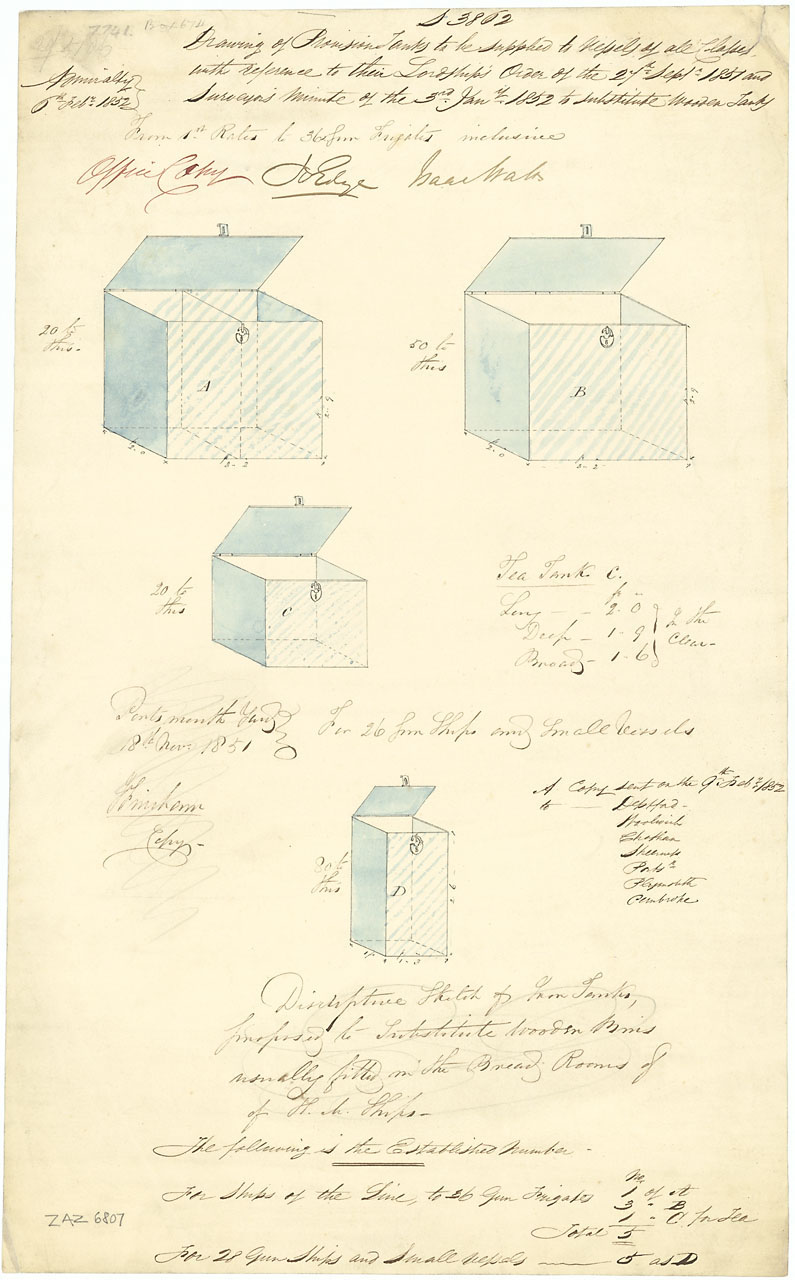 S 3862
7741.
Drawing of Provision Tanks to be supplied to Vessels of all Classes
with reference to their Lordship's Order of the 27th Septr 1851 and
Surveyor's Minute of the 3rd Jany 1852 to substitute Wooden Tanks
Admiralty
6th Feby 1852
From 1st Rates to 36 Gun Frigates inclusive
Office Copy J Edye Isaac Watts
20 to
this -
A
2-0
3-2
2-9
50 to
this
B
2-0
3-2
2-9
20 to
this
C
Tea Tank C.
f "
Long - - 2. 0
Deep - 1-9
Broad - 1-6
In the
Clear -
Portsmouth Yard
18th Novr 1851
For 26 Gun Ships and Small Vessels
Copy -
A Copy sent on the 9th Feby 1852
to - Deptford -
Woolwich
Chatham
Sheerness
Portsh
Plymouth
Pembroke
20 to
this
D
Discriptive Sketch of Iron Tanks,
proposed to Substitute Wooden Bins
usually fitted in the Bread Rooms of
of H. M. Ships -
The following is the Established Number -
No
For Ships of the Line, to 36 Gun Frigates 1 of A
3 " B
1 " C for Tea
Total 5
For 28 Gun Ships and Small Vessels 5 as D
ZAZ 6807